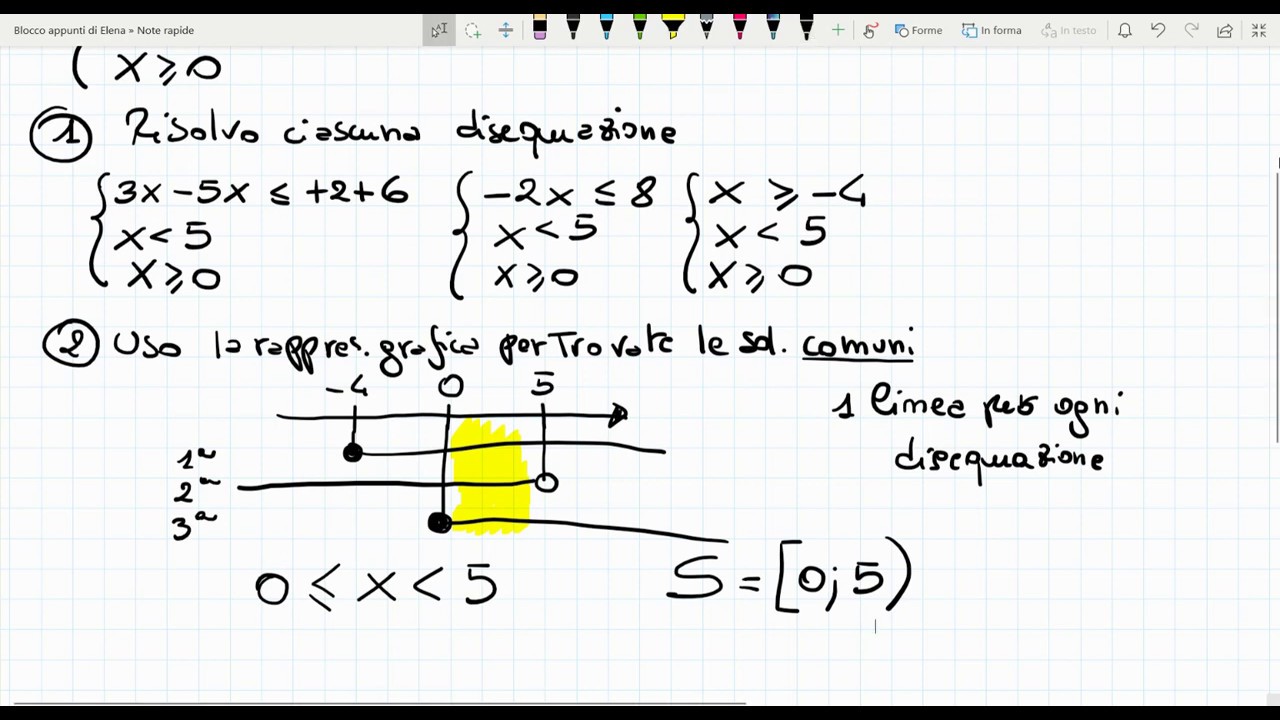 Blocco appunti di Elena » Note rapide
Forme In forma In testo
x ≥ 0
1 Risolvo ciascuna disequazione
3x - 5x ≤ +2+6
x < 5
x ≥ 0
-2x ≤ 8
x < 5
x ≥ 0
x ≥ -4
x < 5
x ≥ 0
2 Uso la rappres. grafica per Trovare le sol. comuni
-4 0 5
1 linea per ogni
disequazione
1ª
2ª
3ª
0 ≤ x < 5
S = [0; 5)